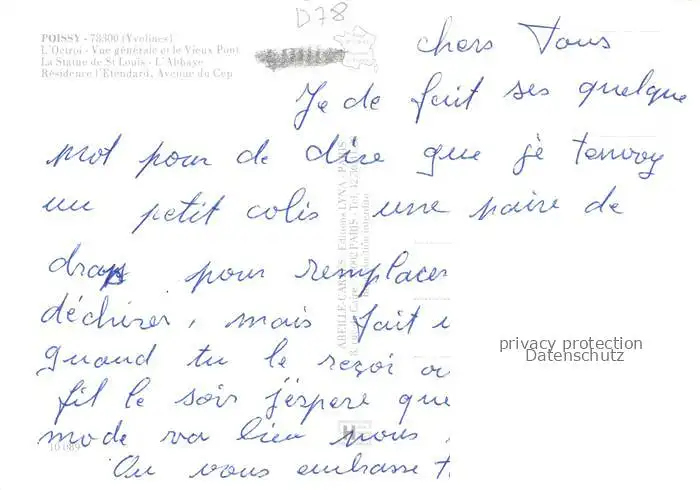 D78
POISSY - 78300 (Yvelines)
L'Octroi - Vue générale et le Vieux Pont
La Statue de St Louis - L'Abbaye
Résidence l'Etendard, Avenue du Cep
chers Tous
Je de fait ses quelque
mot pour de dire que je tenvoy
un petit colis une paire de
draps pour remplacer
déchirer, mais fait
quand tu le reçoi
fil le soir j'éspere que
mode va bien nous
On vous embrasse
10 089
ABEILLE-CARTES - Editions LYNA - PARIS
privacy protection
Datenschutz